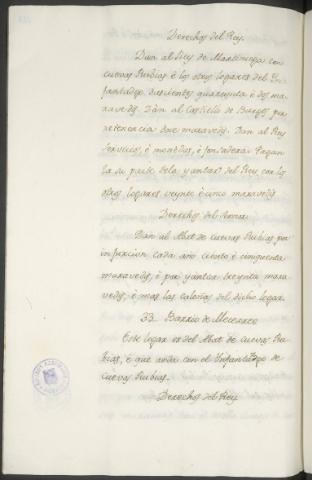 Derechos del Rey.
Dan al Rey de Martiniega con
cuevas Rubias è los otros logares del In-
fantadgo dusientos quarenta è dos ma-
ravedis. Dàn al Castiello de Burgos por
retenencia dose maravedis. Dan al Rey
servicios, è monedas, è fonsadera. Pagan
la su parte dela yantar del Rey con los
otros logares veynte è cinco maravedis.
Derechos del Sennor
Dàn al Abat de cuevas Rubias por
infurcion cada año ciento è cinquenta
maravedis, è por yantar treynta mara-
vedis, è mas las caloñas del dicho logar.
33. Barrio de
Este logar es del Abat de cuevas Ru-
bias, è que anda con el Infantadgo de
cuevas Rubias.
Derechos del Rey